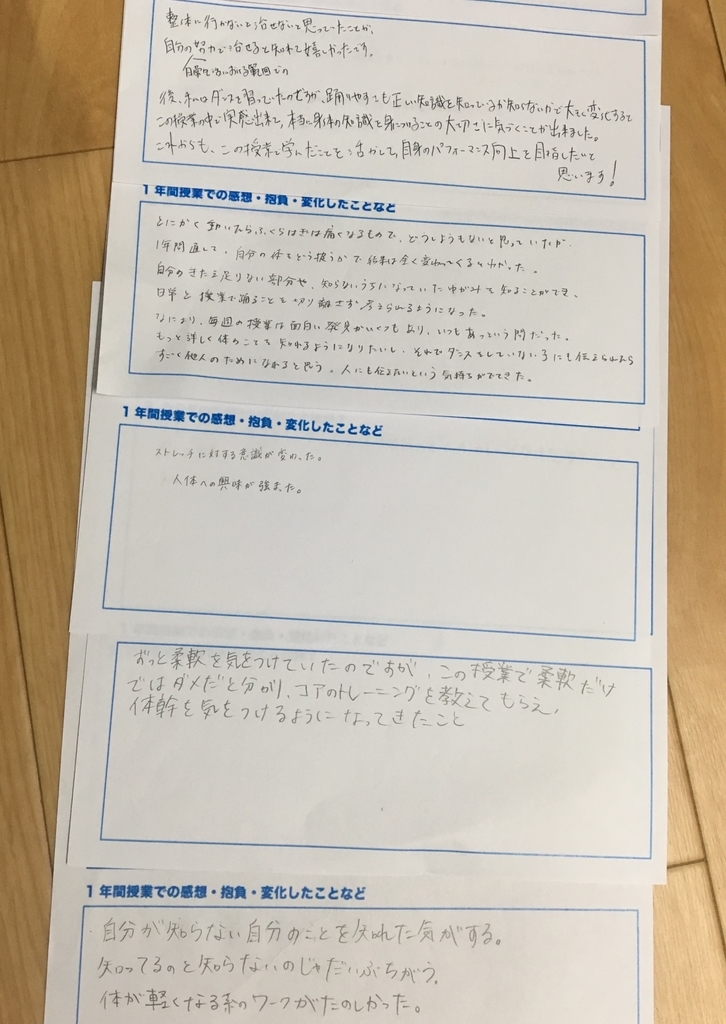 整体に行かないと治せないと思っていたことが、
自分の努力で治せると知れて嬉しかったです。
日常生活における範囲での
後、私はダンスを習っていたのですが、踊りやすさも正しい知識を知っているか知らないかで大きく変化すると
この授業の中で実感出来て、本当に身体の知識を身につけることの大切さに気づくことが出来ました。
これからも、この授業で学んだことを活かして、自身のパフォーマンス向上を目指したいと
思います!
1年間授業での感想・抱負・変化したことなど
とにかく動いたらふくらはぎは痛くなるもので、どうしようもないと思っていたが、
1年間通して、自分の体をどう扱うかで結果は全く変わってくると分かった。
自分のきたえ足りない部分や、知らないうちになっていたゆがみを知ることができ、
日常と授業で踊ることを切り離さず考えられるようになった。
なにより、毎週の授業は面白い発見がいくつもあり、いつもあっという間だった。
もっと詳しく体のことを知れるようになりたいし、それをダンスをしていない子にも伝えられたら
すごく他人のためになれると思う。人にも伝えたいという気持ちがでてきた。
1年間授業での感想・抱負・変化したことなど
ストレッチに対する意識が変わった。
人体への興味が強まった。
ずっと柔軟を気をつけていたのですが、この授業で柔軟だけ
ではダメだと分かり、コアのトレーニングを教えてもらえ、
体幹を気をつけるようになってきたこと
1年間授業での感想・抱負・変化したことなど
自分が知らない自分のことを知れた気がする。
知ってるのと知らないのじゃだいぶちがう。
体が軽くなる系のワークがたのしかった。